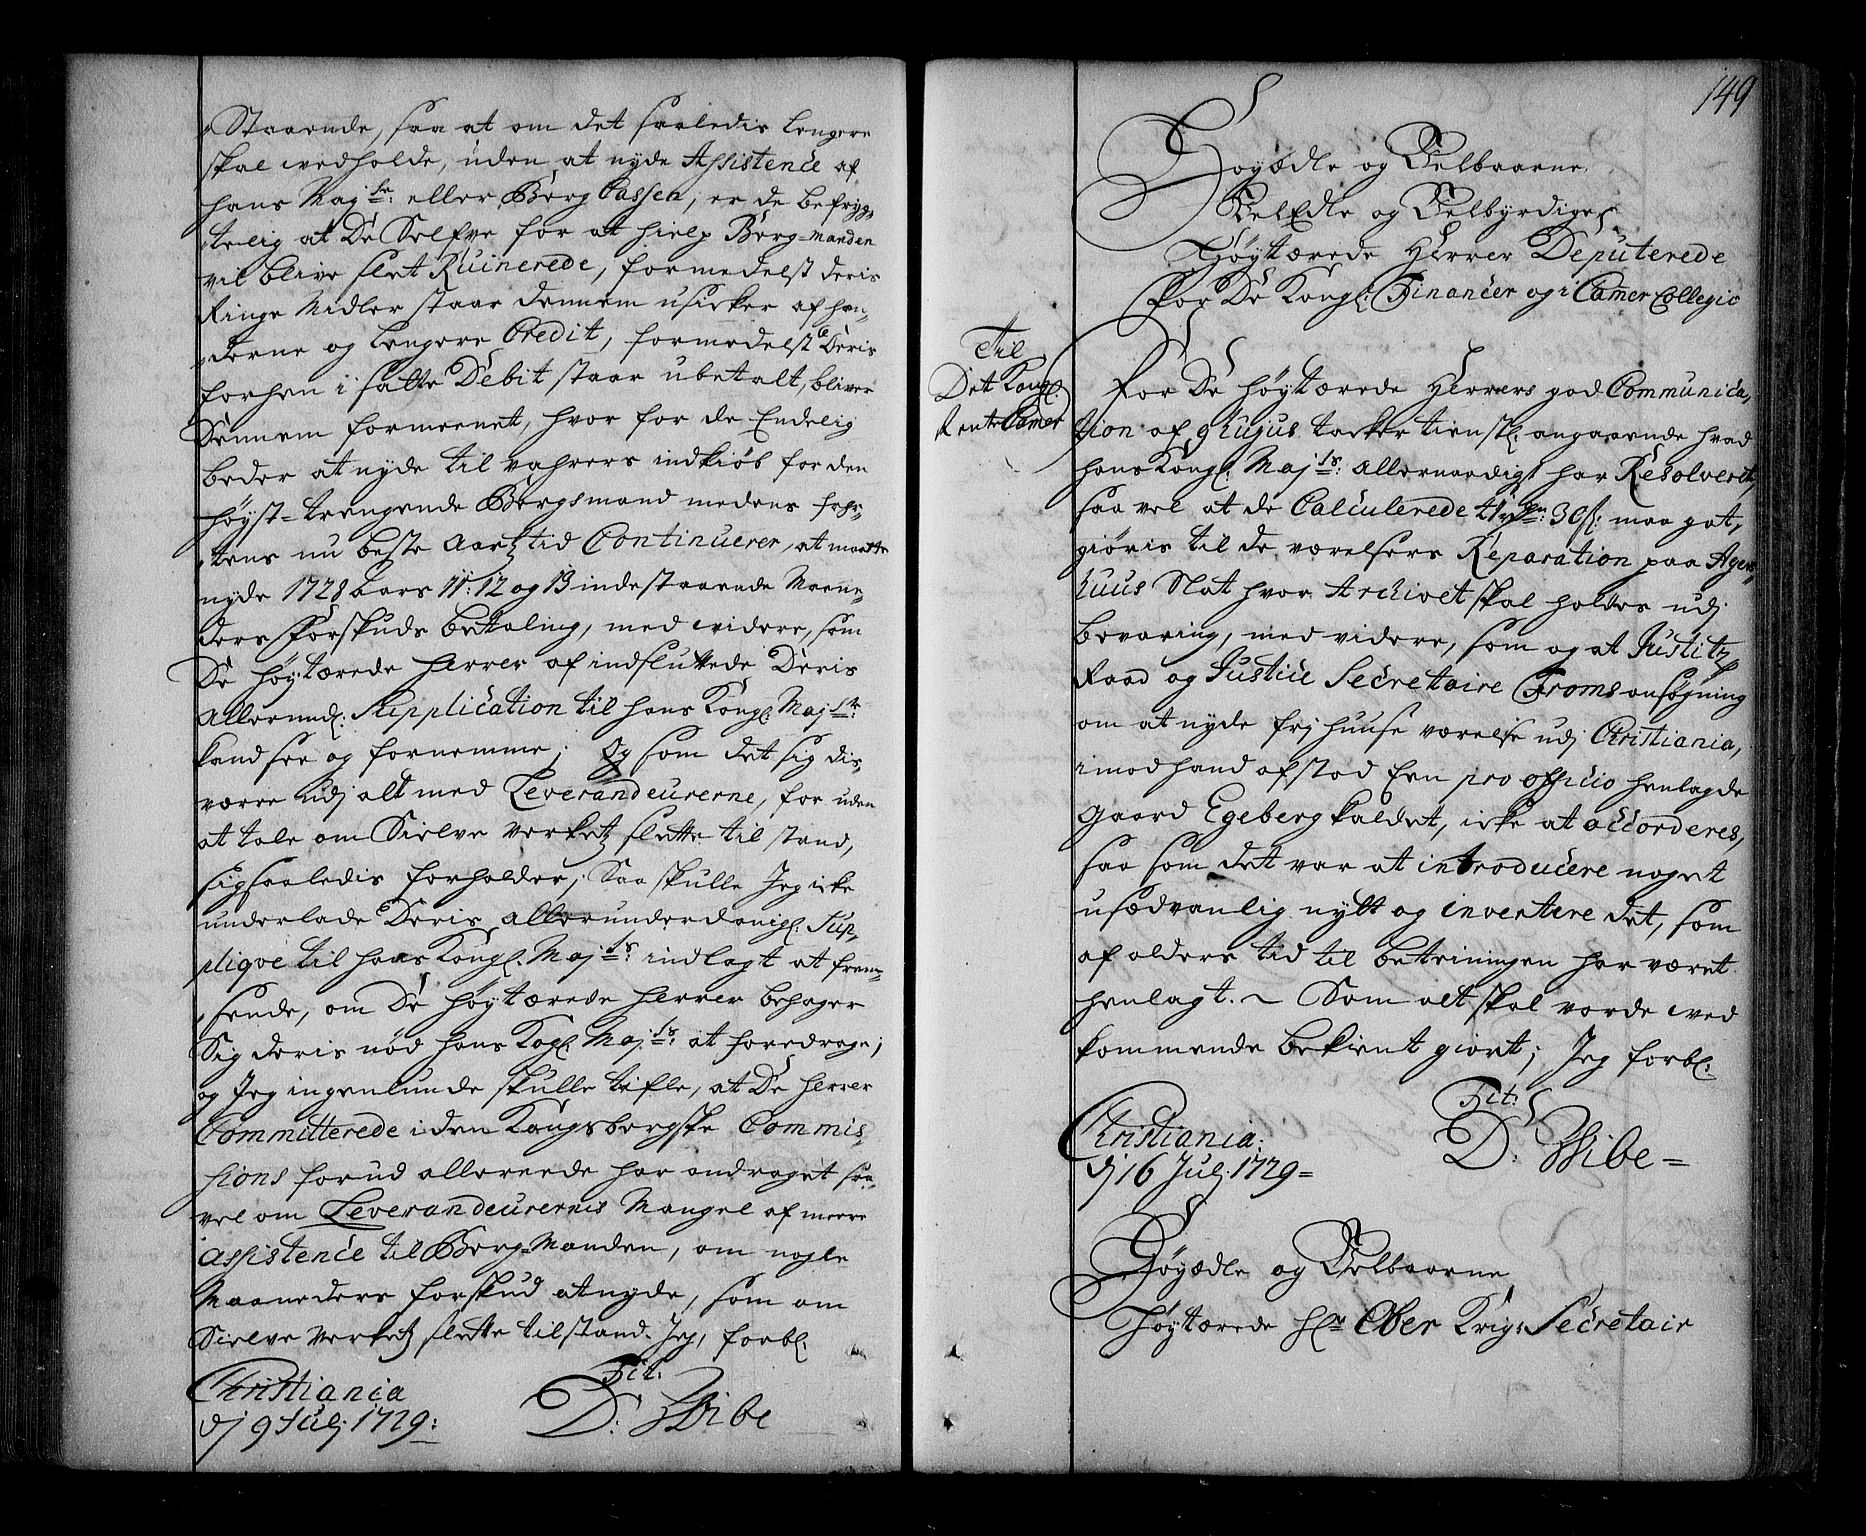 Staaende, saa at om det saaledis lengere
skal vedholde, uden at nyde Assistence af
hans Maj:ts: eller Berg Cassen, er de befryg-
telig at De Selfve for at hielp Berg-manden
vil blive slet Ruinerede, formedelst deris
Ringe Midler staar dennem usicker af hæn-
derne og lengere Credit, formedelst Deris
forhen i satte Debit staar ubetalt, bliver
Dennem formeenet, hvor for de Endelig
beder at nyde til vahrers indkiøb for den
høyst-trengende Bergsmand medens
nu beste Aarstid Continuerer, at maatte
nyde 1728 Aars 11: 12 og 13 indestaaende Maane-
ders Forskuds betaling, med videre, som
De høytærede Herrer af indsluttede Deris
Allerund: Supplication til hans Kongl: Maj:ts
kand see og fornemme; Og som det sig dis-
værre udj alt med Leverandeurerne, for uden
at tale om Sielve Verketz slette til stand,
sig saaledis forholder, Saa skulle Jeg icke
underlade Deris allerunderdanigl: Sup-
plique til hans Kongl: Maj:ts: indlagt at frem-
sende, om De høytærede Herrer behager
Sig deris nød hans Kogl: Maj:ts: at foredrage;
og Jeg ingenlunde skulle tvifle, at De Herrer
Committerede i den Kongsbergske Commis-
sions forud allereede har andraget saa-
vel om Leverandeurernis Mangel af meere
assistence til Berg-Manden, om nogle
Maaneders forskud at nyde, som om
Sielve Verketz slette tilstand. Jeg forbl:
Tit:
Christiania
dj 9 Julj 1729:
D: Wibe
149
Høyædle og Velbaarne
VelEdle og Velbyrdige
Høytærede Herrer Deputerede
for De Kongl: Financer og i Camer Collegio
Til
Det Kongl:
Rente Camer
For De høytærede Herrers god Communica-
tion af 9 hujus tacker tienstl: angaaende hvad
hans Kongl: Maj:ts: allernaadigst har Resolveret,
saa vel at de Calculerede 30 s: maa got-
giøris til de værelsers Reparation paa Agers-
huus Slot hvor Archivet skal holdes udj
bevaring, med videre, som og at Justitz
Raad og Justice Secretaire Froms ansøgning
om at nyde frj huuse værelse udj Christiania,
imod hand afstod Een pro officio henlagde
gaard Egeberg kaldet, icke at accorderes,
saa som det var at introducere noget
usædvanlig nytt og invertere det, som
af alders tid til betieningen har været
henlagt. ~ Som alt skal vorde ved
kommende bekient giort; Jeg forbl:
Tit:
Christiania:
dj 16 Julj 1729=
D: Wibe=
Høyædle og Velbaarne
Høytærede Hr Ober Krigs Secretair